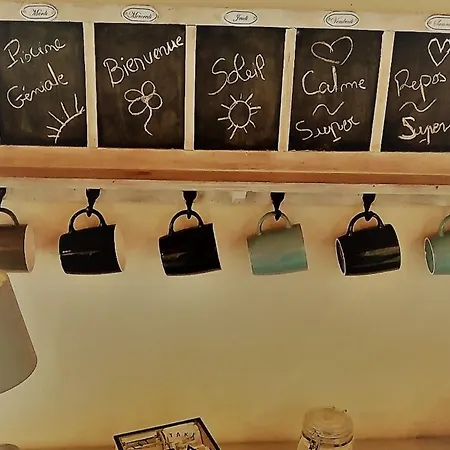 Mardi
Mercredi
Jeudi
Vendredi
Samedi
Piscine
Géniale
Bienvenue
Soleil
Calme
~
Super
Repos
~
Super